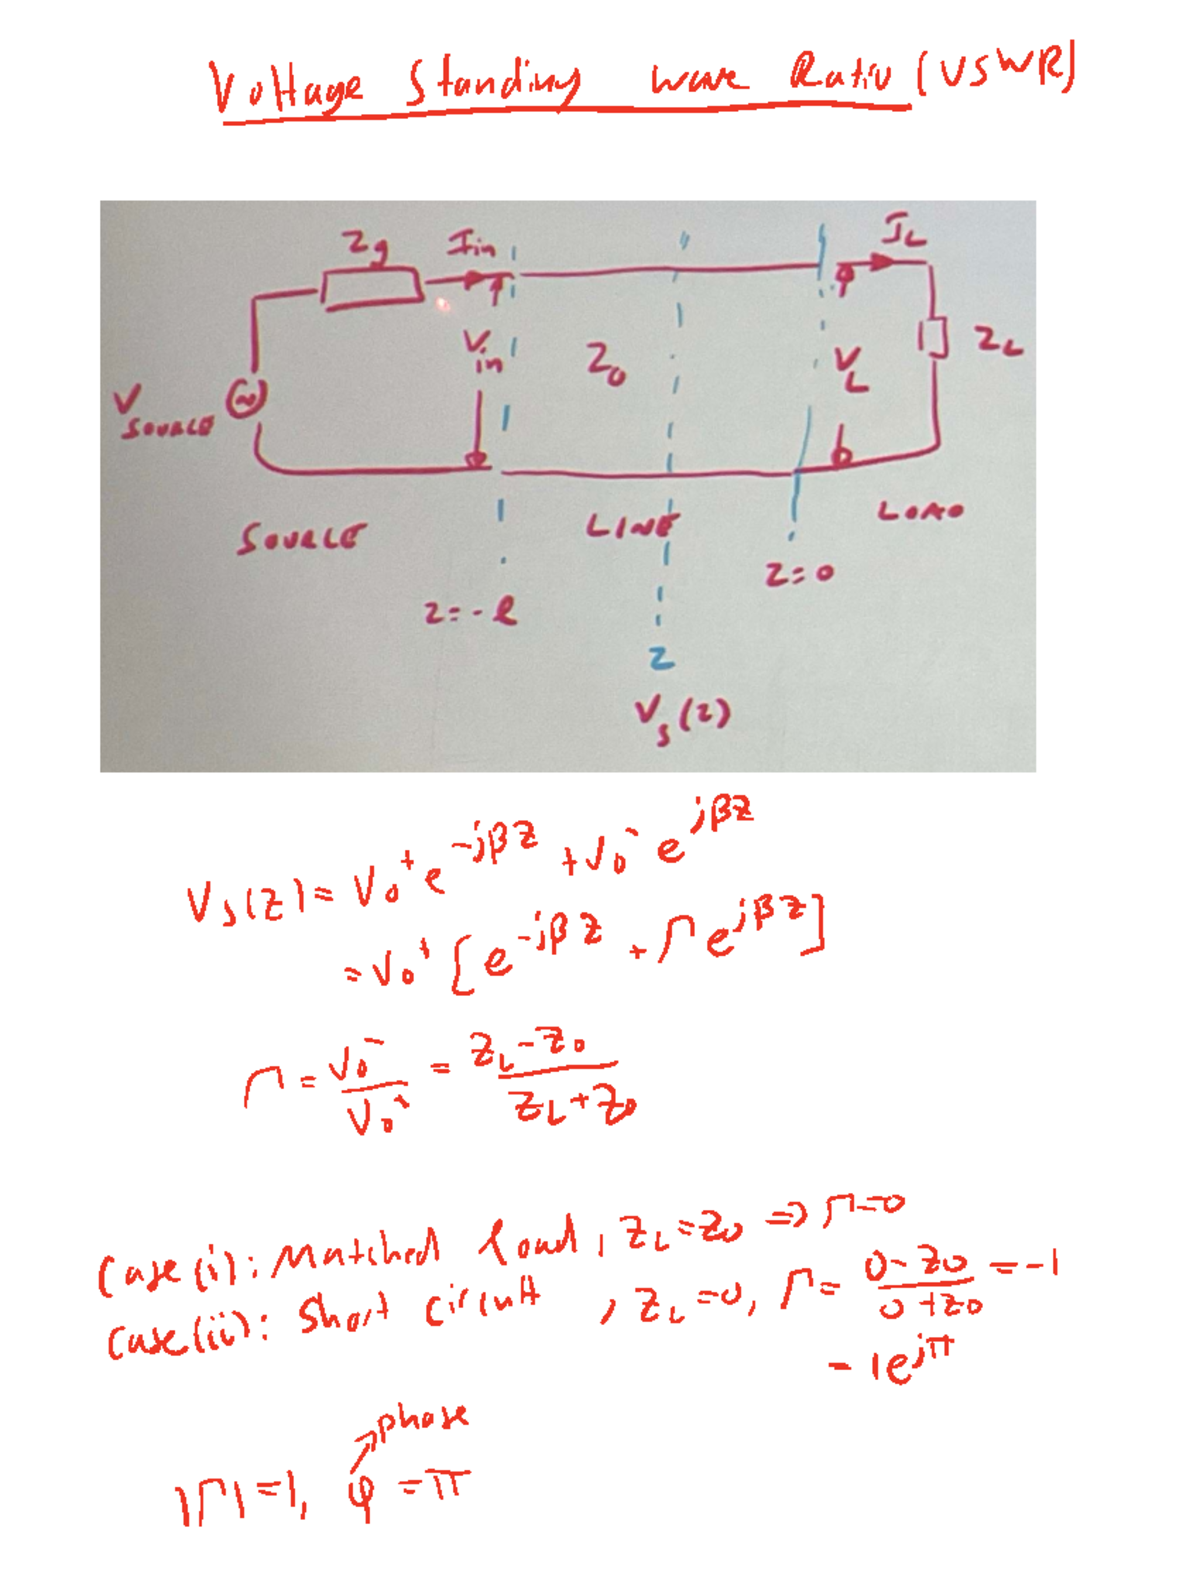 Voltage Standing wave Ratio (VSWR)
Zg Iin IL
Vin Z₀ VL ZL
VSOURCE
SOURCE LINE LOAD
z=-l z=0
z
Vs(z)
Vs(z) = V₀⁺e^{-jβz} + V₀⁻e^{jβz}
= V₀⁺[e^{-jβz} + Γe^{jβz}]
Γ = V₀⁻/V₀⁺ = (ZL-Z₀)/(ZL+Z₀)
Case(i): Matched load, ZL=Z₀ ⇒ Γ=0
Case(ii): Short circuit, ZL=0, Γ = (0-Z₀)/(0+Z₀) = -1
= 1e^{jπ}
phase
|Γ|=1, φ=π